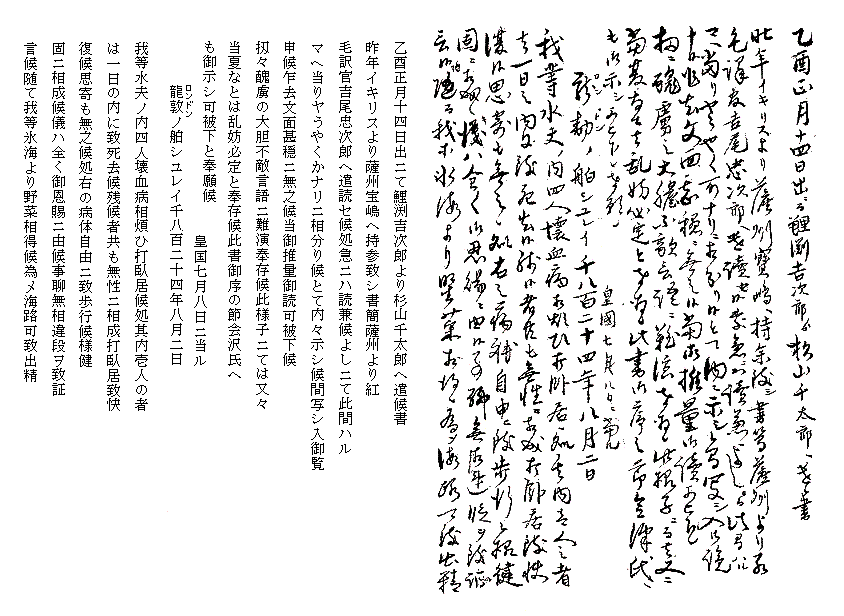 乙酉正月十四日出ニて鯉渕吉次郎より杉山千太郎へ遣候書
昨年イキリスより薩州宝嶋へ持参致シ書簡薩州より紅
毛訳官吉尾忠次郎へ遣読セ候処急ニハ読兼候よしニて此間ハル
マへ当りヤうやくかナリニ相分り候とて内々示シ候間写シ入御覧
申候乍去文面甚穏ニ無之候当御推量御読可被下候
扨々醜虜の大胆不敵言語ニ難演奉存候此様子ニては又々
当夏なとは乱妨必定と奉存候此書御序の節会沢氏へ
も御示シ可被下と奉願候
皇国七月八日ニ当ル
龍敦ノ舶シユレイ千八百二十四年八月二日
ロンドン
我等水夫ノ内四人壊血病相煩ひ打臥居候処其内壱人の者
は一日の内に致死去候残候者共も無性ニ相成打臥居致快
復候思寄も無之候処右の病体自由ニ致歩行候様健
固ニ相成候儀ハ全く御恩賜ニ由候事聊無相違段ヲ致証
言候随て我等氷海より野菜相得候為メ海路可致出精
乙酉正月十四日出ニて鯉渕吉次郎より杉山千太郎へ遣書
昨年イキリスより薩州寶嶋へ持参致シ書簡薩州より紅
毛訳官吉尾忠次郎へ遣読セ候処急ニハ読兼候よしニて此間ハル
マへ当りヤうやくかナリニ相分り候とて内々示シ候間写シ入御覧
申候乍去文面甚穏ニ無之候当御推量御読可被下候
扨々醜虜の大胆不敵言語ニ難演奉存候此様子ニては又々
当夏なとは乱妨必定と奉存候此書御序の節会沢氏へ
も御示シ可被下と奉願候
皇國七月八日ニ当ル
龍敦ノ舶シユレイ千八百二十四年八月二日
ロンドン
我等水夫ノ内四人壊血病相煩ひ打臥居候処其内壱人の者
は一日の内に致死去候残候者共も無性ニ相成打臥居致快
復候思寄も無之候処右の病体自由ニ致歩行候様健
固ニ相成候儀ハ全く御恩賜ニ由候事聊無相違段ヲ致証
言候随て我等氷海より野菜相得候為メ海路可致出精